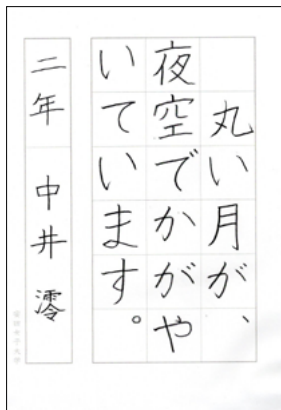 丸い月が、
夜空でかがや
いています。
二年 中井 澪